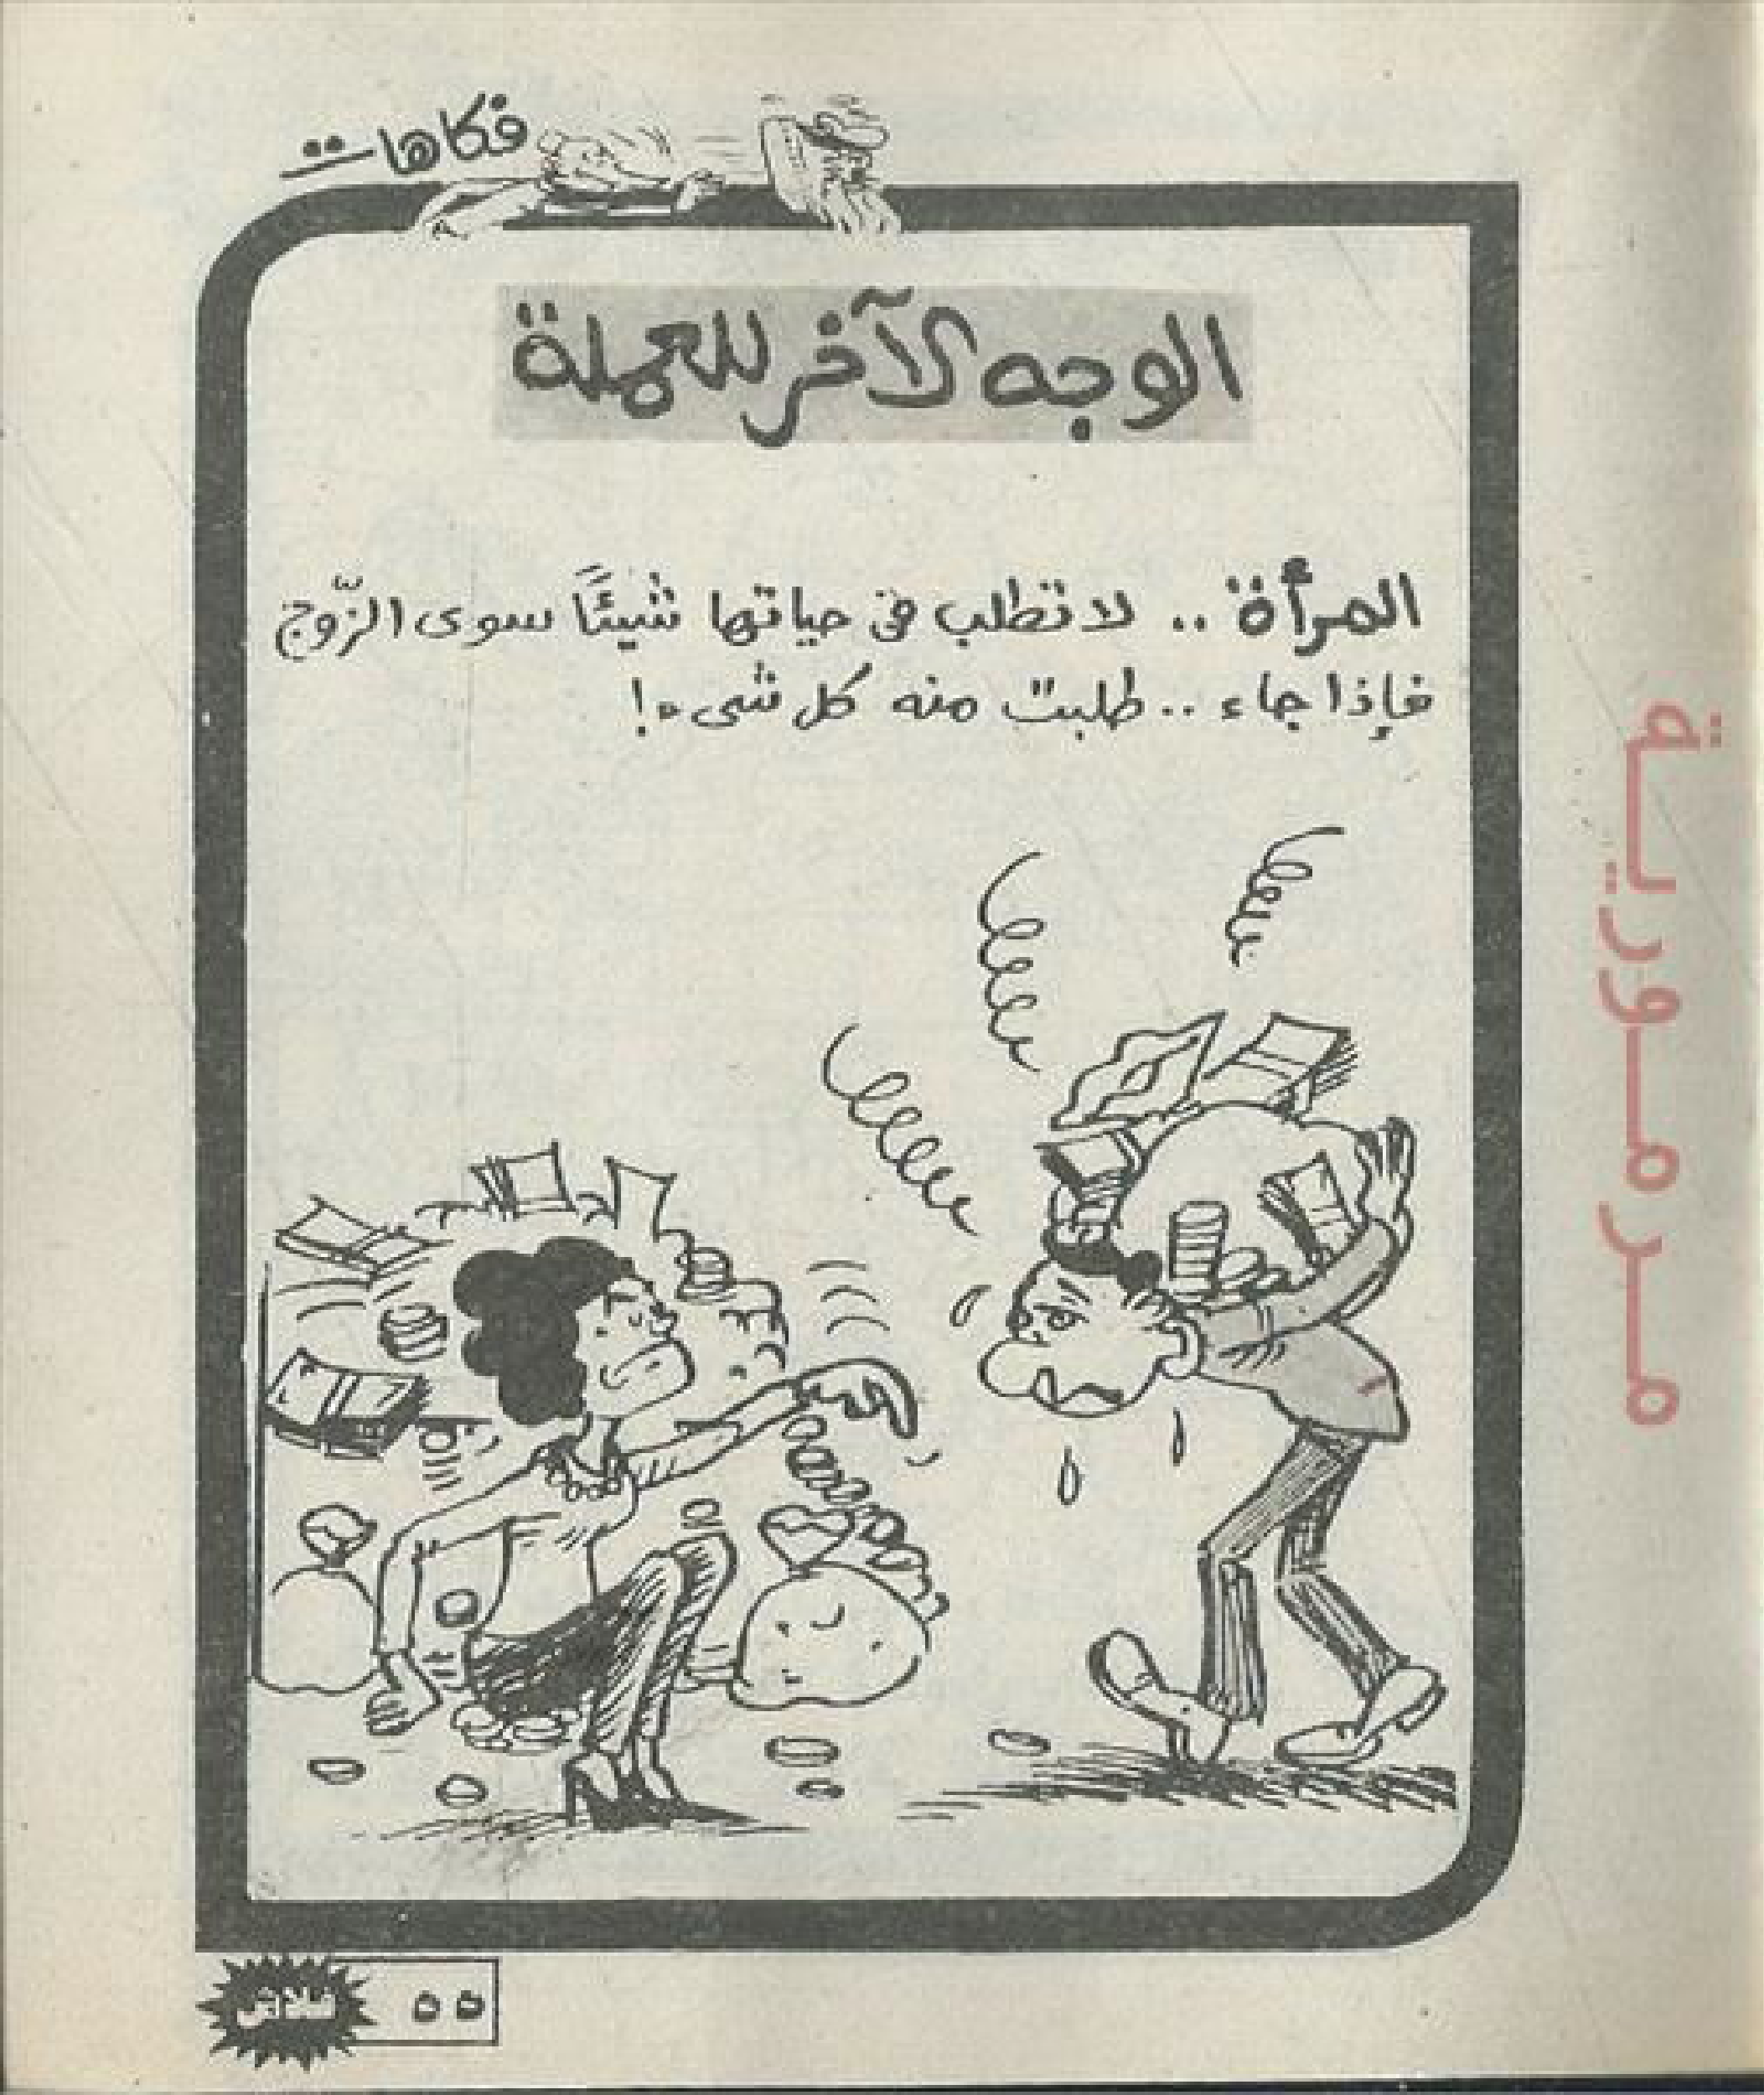 فكاهات
الوجه الآخر للعملة
المرأة .. لا تطلب في حياتها شيئًا سوى الزّوج
فإذا جاء .. طلبت منه كل شىء !
مرمورية
فلاش
٥٥